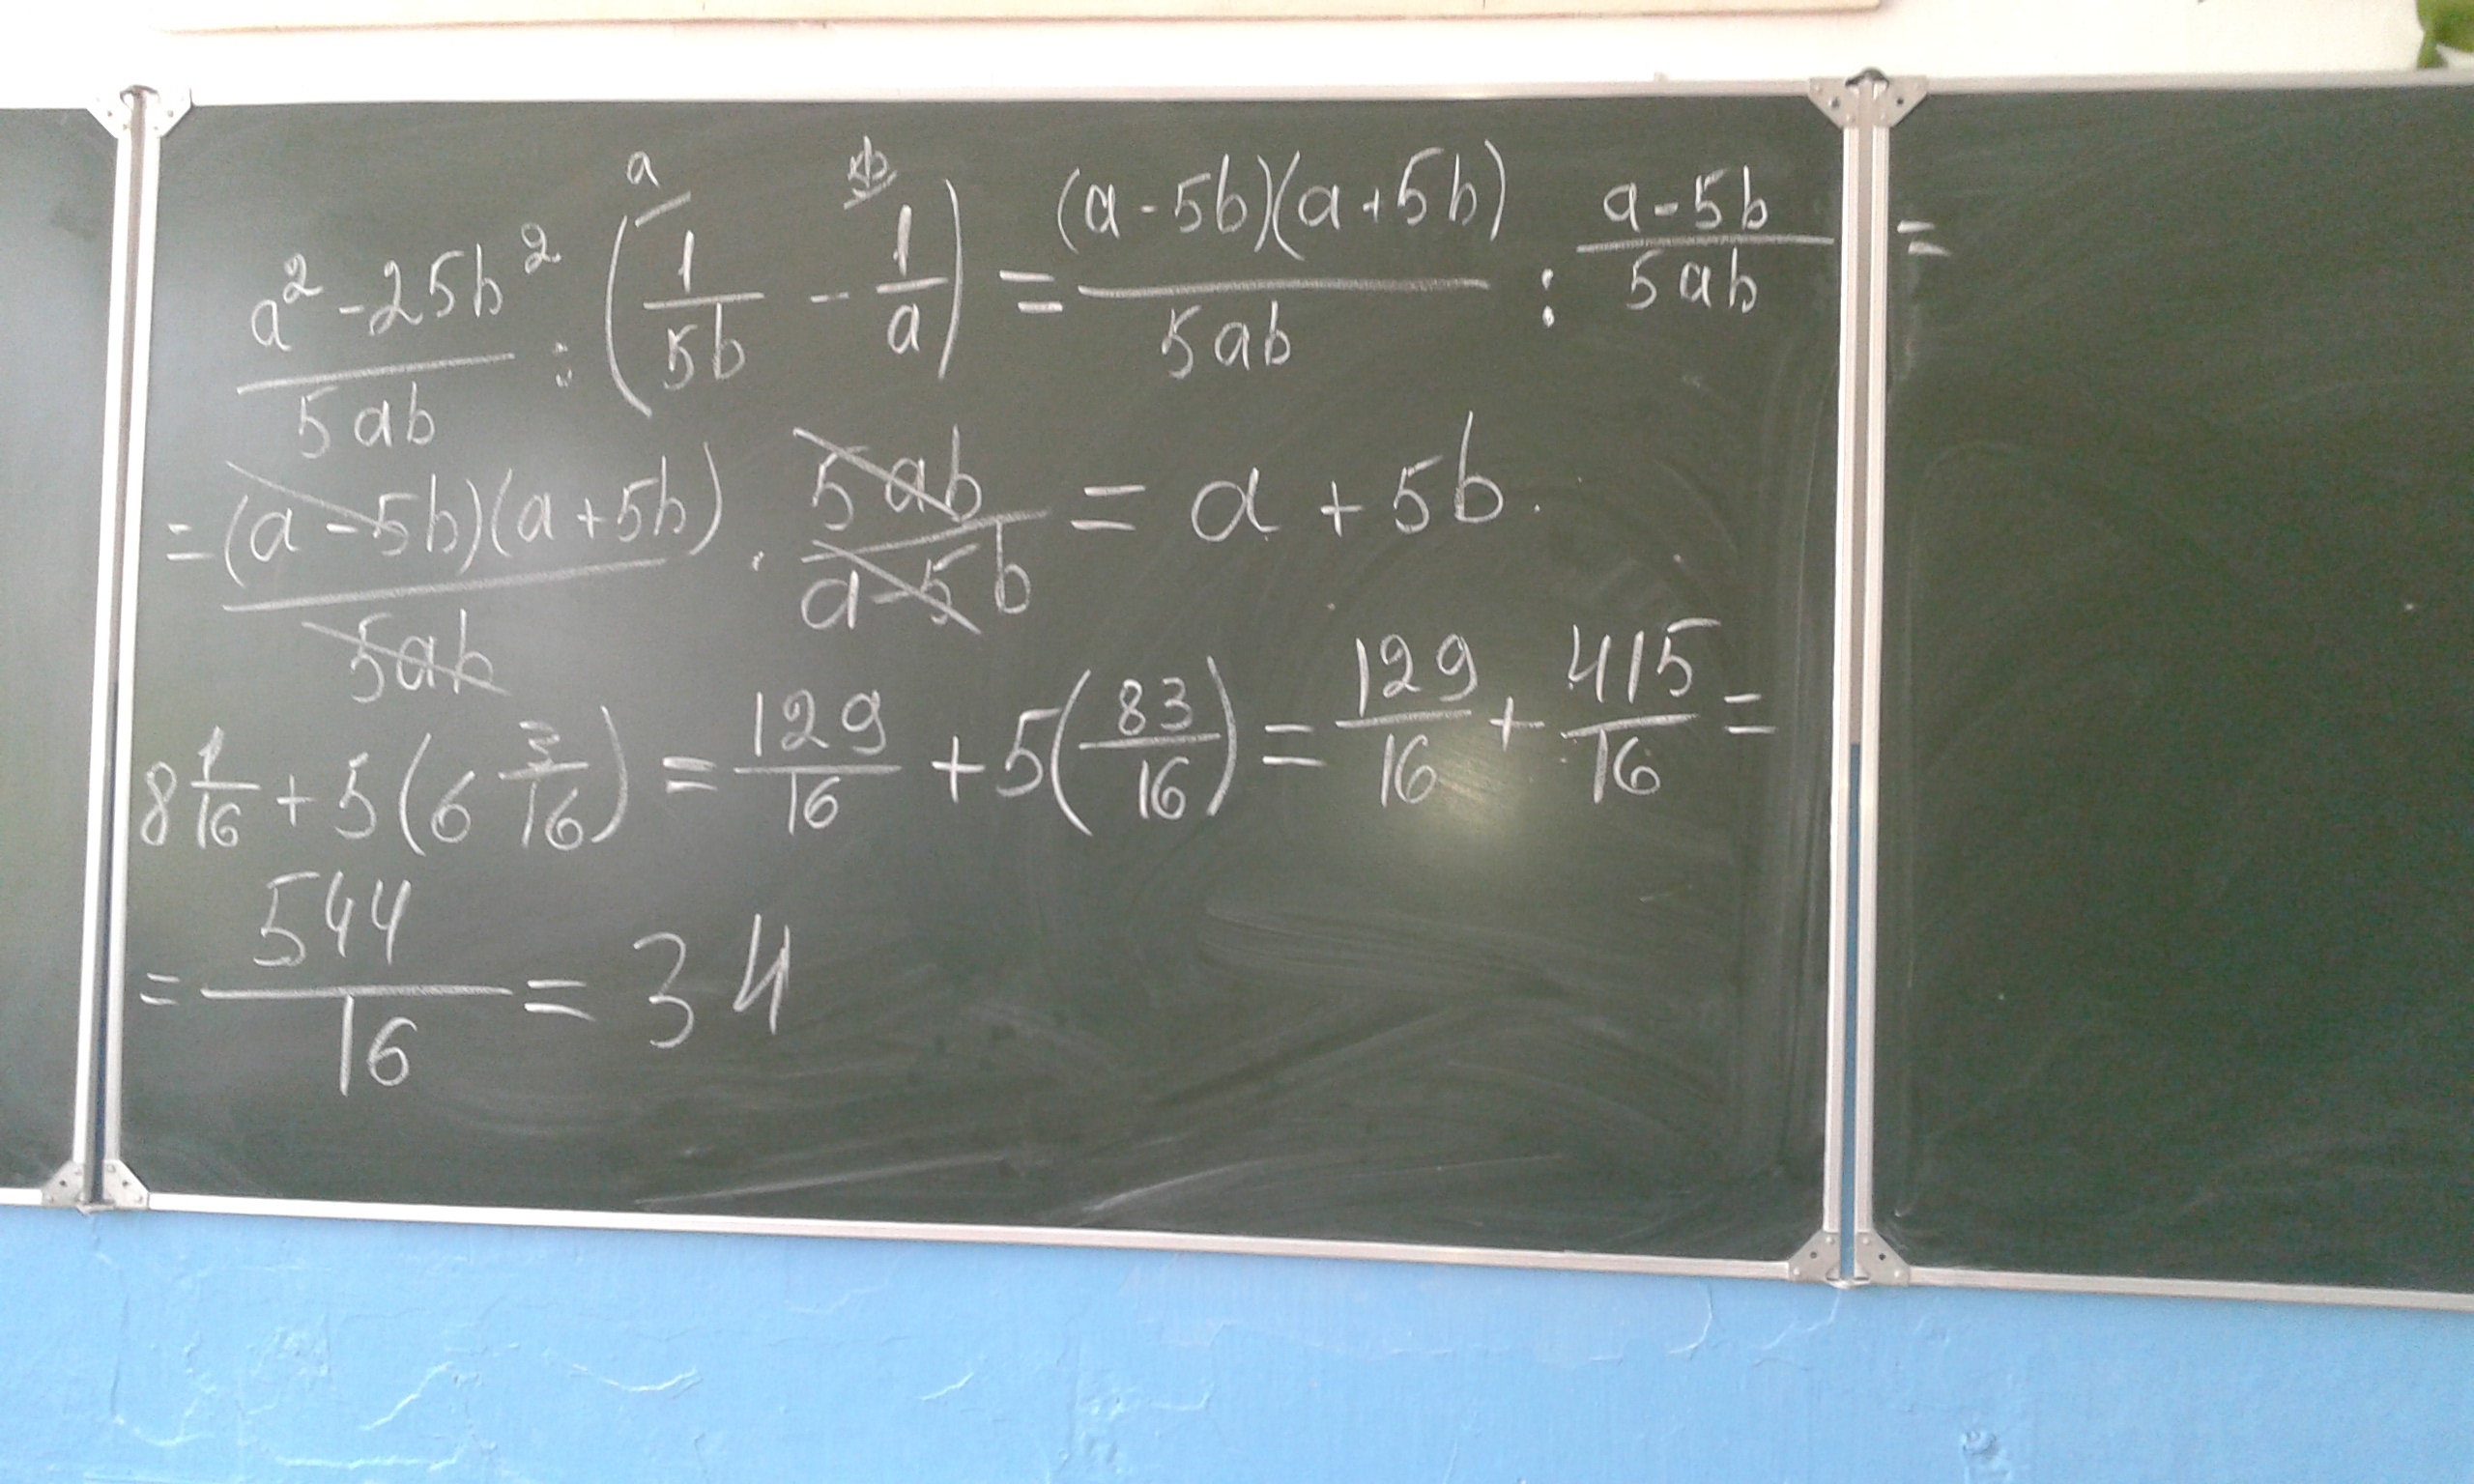 (a² - 25b²)/(5ab) : (1/(5b) - 1/a) = ((a - 5b)(a + 5b))/(5ab) : (a - 5b)/(5ab) =
= ((a - 5b)(a + 5b))/(5ab) · (5ab)/(a - 5b) = a + 5b.
8 1/16 + 5(6 3/16) = 129/16 + 5(83/16) = 129/16 + 415/16 =
= 544/16 = 34